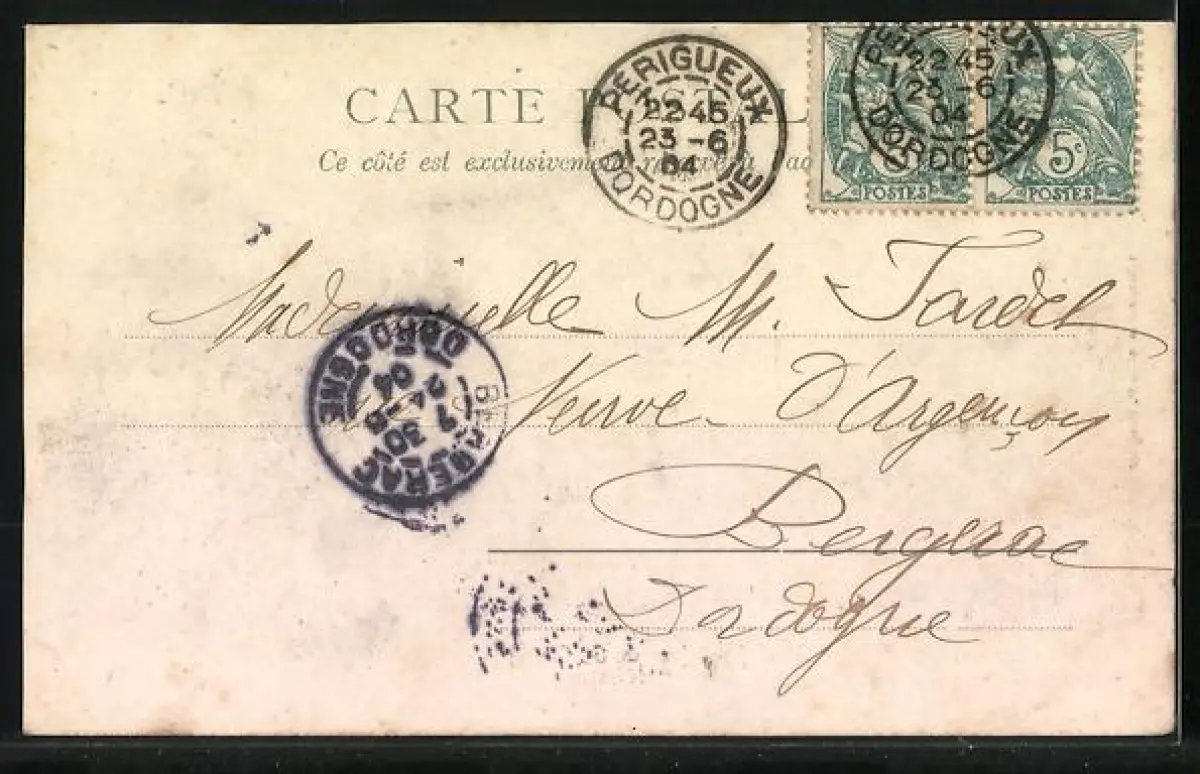 CARTE POSTALE
Ce côté est exclusivement réservé à l'adresse
PÉRIGUEUX
22 45
23 -6
04
DORDOGNE
PÉRIGUEUX
22 45
23 -6
04
DORDOGNE
5c
POSTES
5c
POSTES
Mademoiselle M. Tardel
Neuve d'Argençon
Bergerac
Dordogne
BERGERAC
7 30
24 -6
04
DORDOGNE